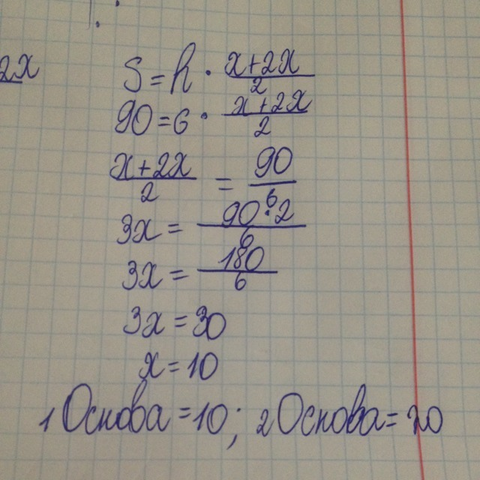 2x
S = h · (x+2x)/2
90 = 6 · (x+2x)/2
(x+2x)/2 = 90/6
3x = (90·2)/6
3x = 180/6
3x = 30
x = 10
1 Основа = 10; 2 Основа = 20